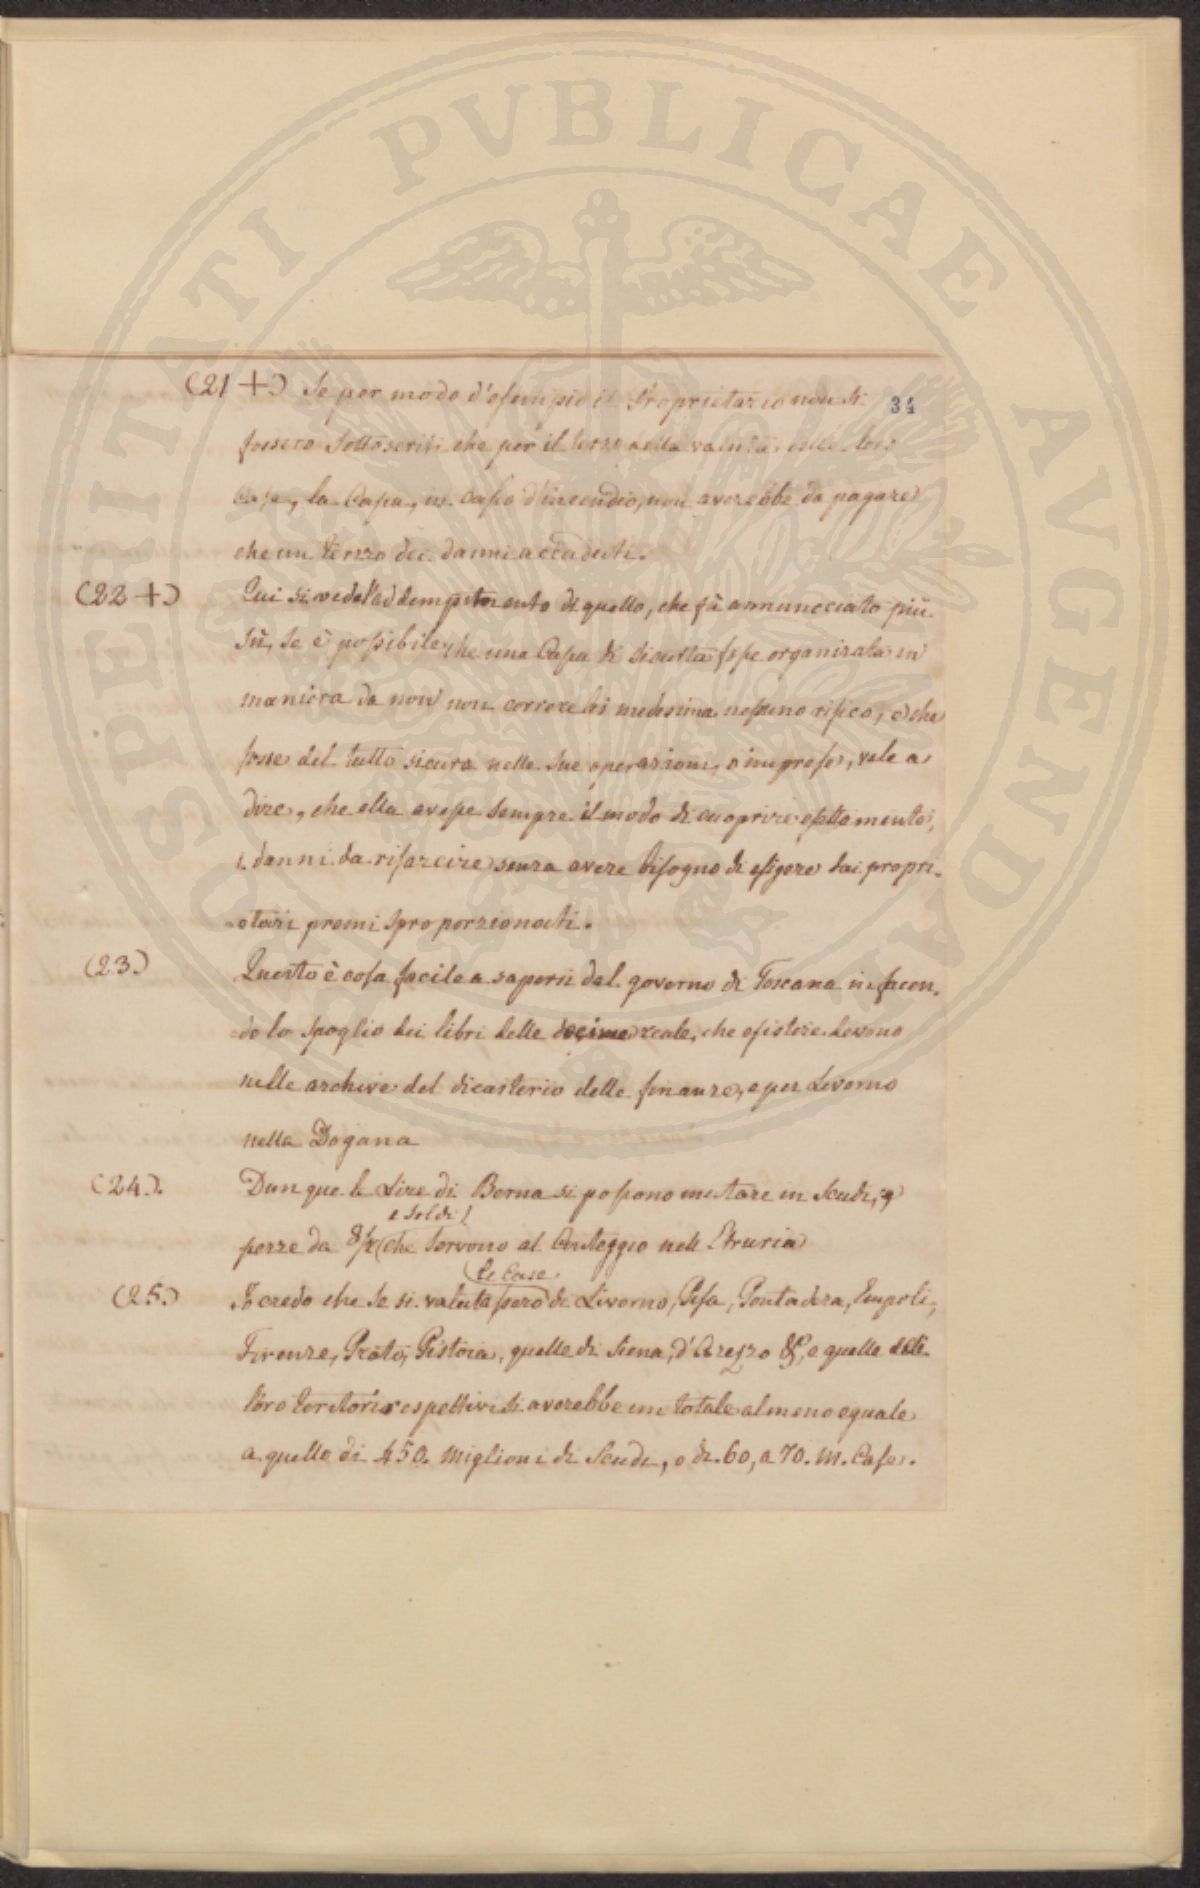 PROSPERITATI PVBLICAE AVGENDAE
34
(21 +) Se per modo d'esempio il Proprietario non si
fossero Sottoscritti che per il terzo della valuta delle loro
Case, la Cassa, in Caso d'incendio, non averebbe da pagare
che un terzo dei danni accaduti.
(22 +) Qui si vede l'addempimento di quello, che fù annunciato più
Sù, Se è possibile che una Cassa di Sicurta fosse organizata in
maniera da non non correre lei medesima nessuno risico, e che
fosse del tutto sicura nelle Sue operazioni, o imprese, vale a
dire, che ella avesse Sempre il modo di cuoprire esattamente,
i danni da risarcire senza avere bisogno di esigere dai propri-
-etarii premi Sproporzionati.
(23.) Questo è cosa facile a sapersi dal governo di Toscana in facen-
-do lo Spoglio dei libri delle decime reale, che esistere devono
nelle archive del dicasterio delle finanze, e per Livorno
nella Dogana
(24.). Dunque le Lire di Berna si possono mutare in Scudi, e
e Soldi
pezze da 8/r (che Servono al Conteggio nell' Etruria
(le Case
(25.) Io credo che Se si valuta però di Livorno, Pisa, Pontadera, Empoli,
Firenze, Prato, Pistoia, quelle di Siena, d'Arezzo &c, e quelle dell
loro territorii respettivi si averebbe un totale almeno eguale
a quello di 450. Miglioni di Scudi, o di 60, a 70. m. Case.